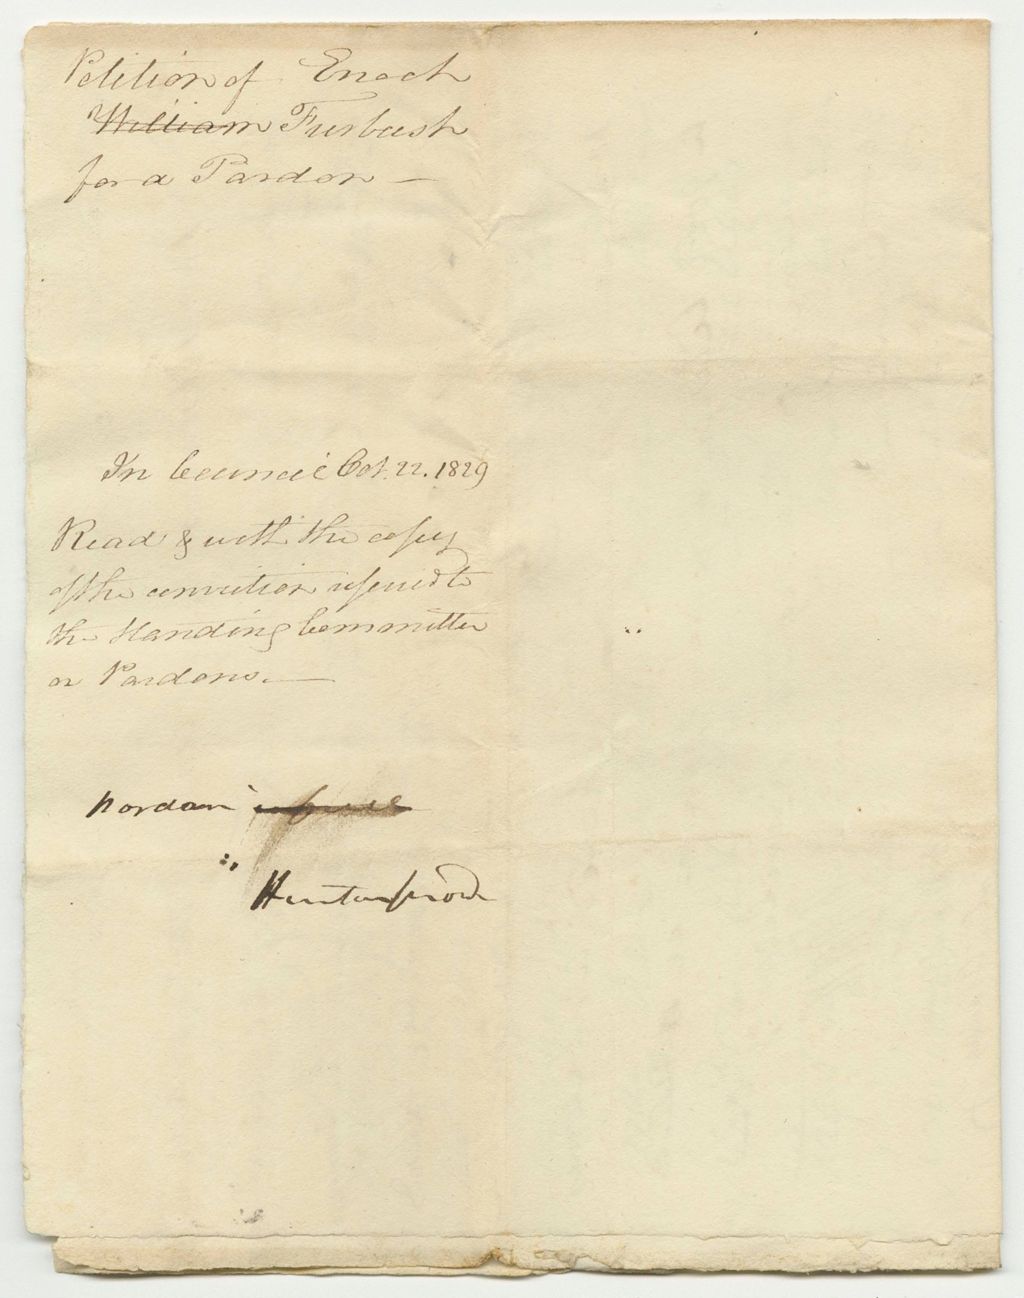 Petition of Enoch
William Furbush
for a Pardon —
In Council Oct. 22. 1829
Read & with the copy
of the conviction referred to
the Standing Committee
on Pardons. —
pardon